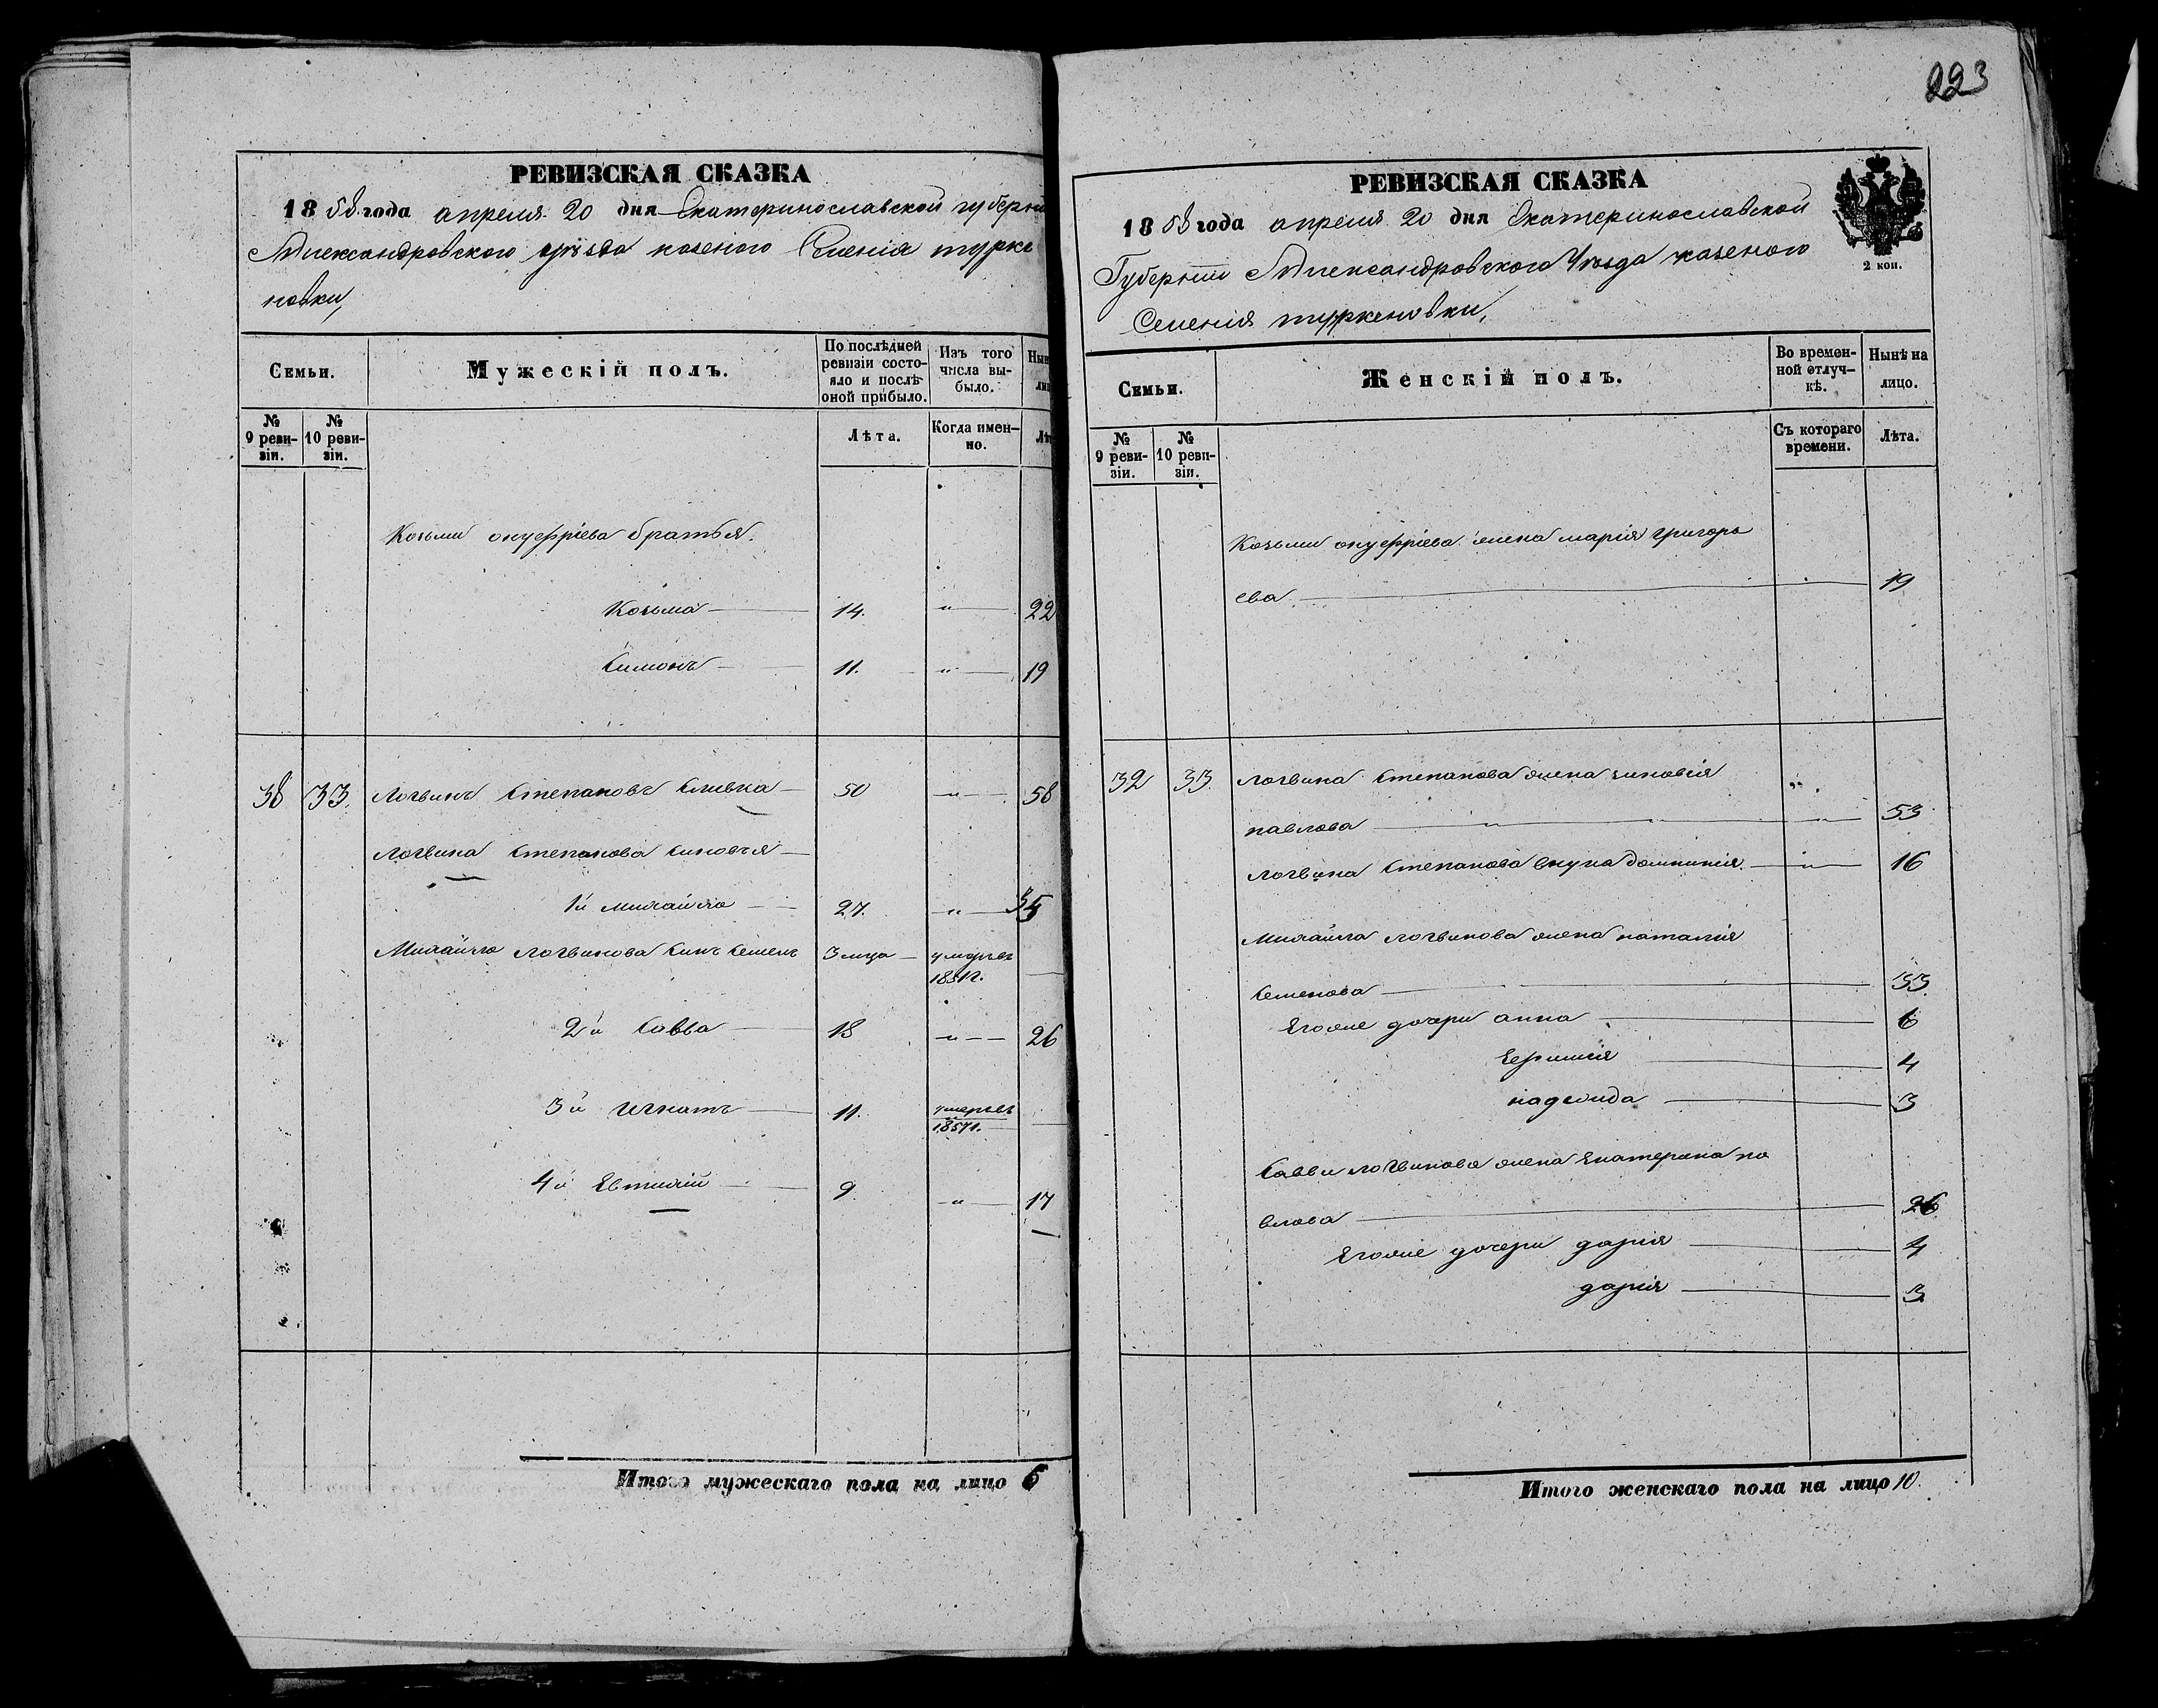 223
РЕВИЗСКАЯ СКАЗКА
1858 года апреля 20 дня Екатеринославской губерн
Александровского уезда казеного Селенія турке
новки,
Семьи.
Мужескій полъ.
По послѣдней ревизіи состояло и послѣ оной прибыло.
Изъ того числа выбыло.
Нын
ли
№ 9 ревизіи.
№ 10 ревизіи.
Лѣта.
Когда именно.
Лѣ
Козьми онуфріева братья.
Козьма 14. " 22
Симонъ 11. " 19
38 33. Логвинъ Степановъ Сливка 50 " 58
Логвина Степанова Сыновья
1й Михайло 27. " 35
Михайло Логвинова Сынъ Семенъ 3 меца умеръвъ
1851г.
2й Савва 18 " 26
3й Игнатъ 11. умеръвъ
1857г.
4й Евтихій 9 " 17
Итого мужескаго пола на лицо 6
РЕВИЗСКАЯ СКАЗКА
1858 года апреля 20 дня Екатеринославской
Губерніи Александровского Уезда казеного
Селенія туркеновки,
2 коп.
Семьи.
Женскій полъ.
Во временной отлучкѣ.
Нынѣ на лицо.
№ 9 ревизіи.
№ 10 ревизіи.
Съ котораго времени.
Лѣта.
Козьми онуфріева жена марія григорь
ева 19
32 33. Логвина Степанова жена зиновія "
павлова " " " 53
Логвина Степанова внука домникія " 16
Михайла логвинова жена наталія
Семенова 33.
Егоже дочери анна 6
4
надежда 3
Савви логвинова жена Екатерина па
влова 26
Егоже дочери дарія 4
дарія 3
Итого женскаго пола на лицо 10.